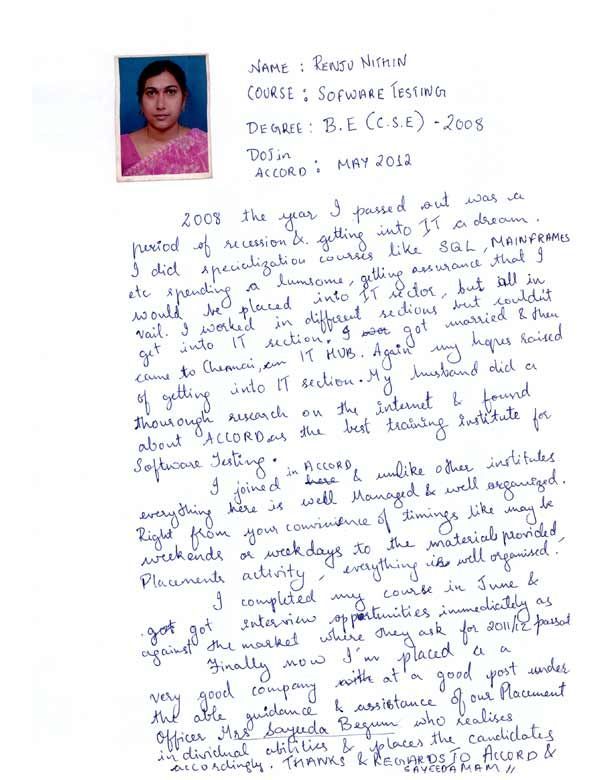 NAME : RENJU NITHIN
COURSE : SOFWARE TESTING
DEGREE : B.E (C.S.E) - 2008
DOJ in
ACCORD : MAY 2012
2008 the year I passed out was a
period of recession & getting into IT a dream.
I did specialization courses like SQL, MAINFRAMES
etc spending a lumsome, getting assurance that I
would be placed into IT sector, but all in
vail. I worked in different sections but couldn't
get into IT section. I got married & then
came to Chennai, an IT HUB. Again my hopes raised
of getting into IT section. My husband did a
thourough research on the internet & found
about ACCORD as the best training institute for
Software Testing.
I joined in ACCORD here & unlike other institutes
everything here is well Managed & well organized.
Right from your convinience of timings like may be
weekends or weekdays to the materials provided,
Placements activity, everything is well organised.
I completed my course in June &
got got interview opportunities immediately as
against the market where they ask for 2011/12 passout
Finally now I'm placed in a
very good company with at a good post under
the able guidance & assistance of our Placement
Officer Mrs Sayeeda Begum who realises
individual abilities & places the candidates
accordingly. THANKS & REGARDS TO ACCORD &
SAYEEDA MAM //